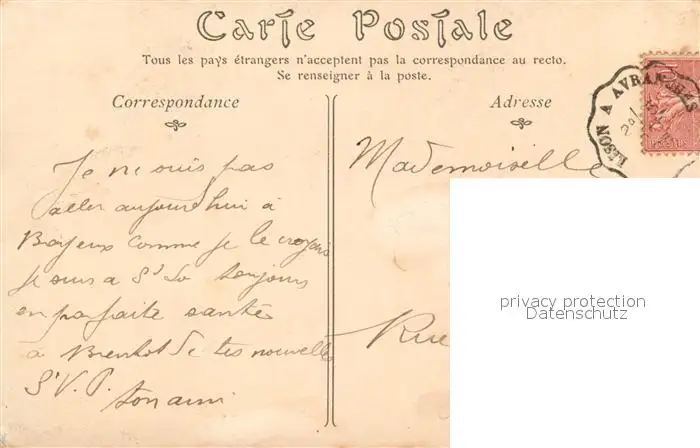 Carte Postale
Tous les pays étrangers n'acceptent pas la correspondance au recto.
Se renseigner à la poste.
Correspondance
Adresse
LISON A AVRANCHES
Je ne suis pas
aller aujourd'hui à
Bayeux comme je le croyais
je suis a St Lo toujours
en parfaite santée
à Bientot de tes nouvelles
S'V.P.
ton ami
Mademoiselle
Rue
privacy protection
Datenschutz